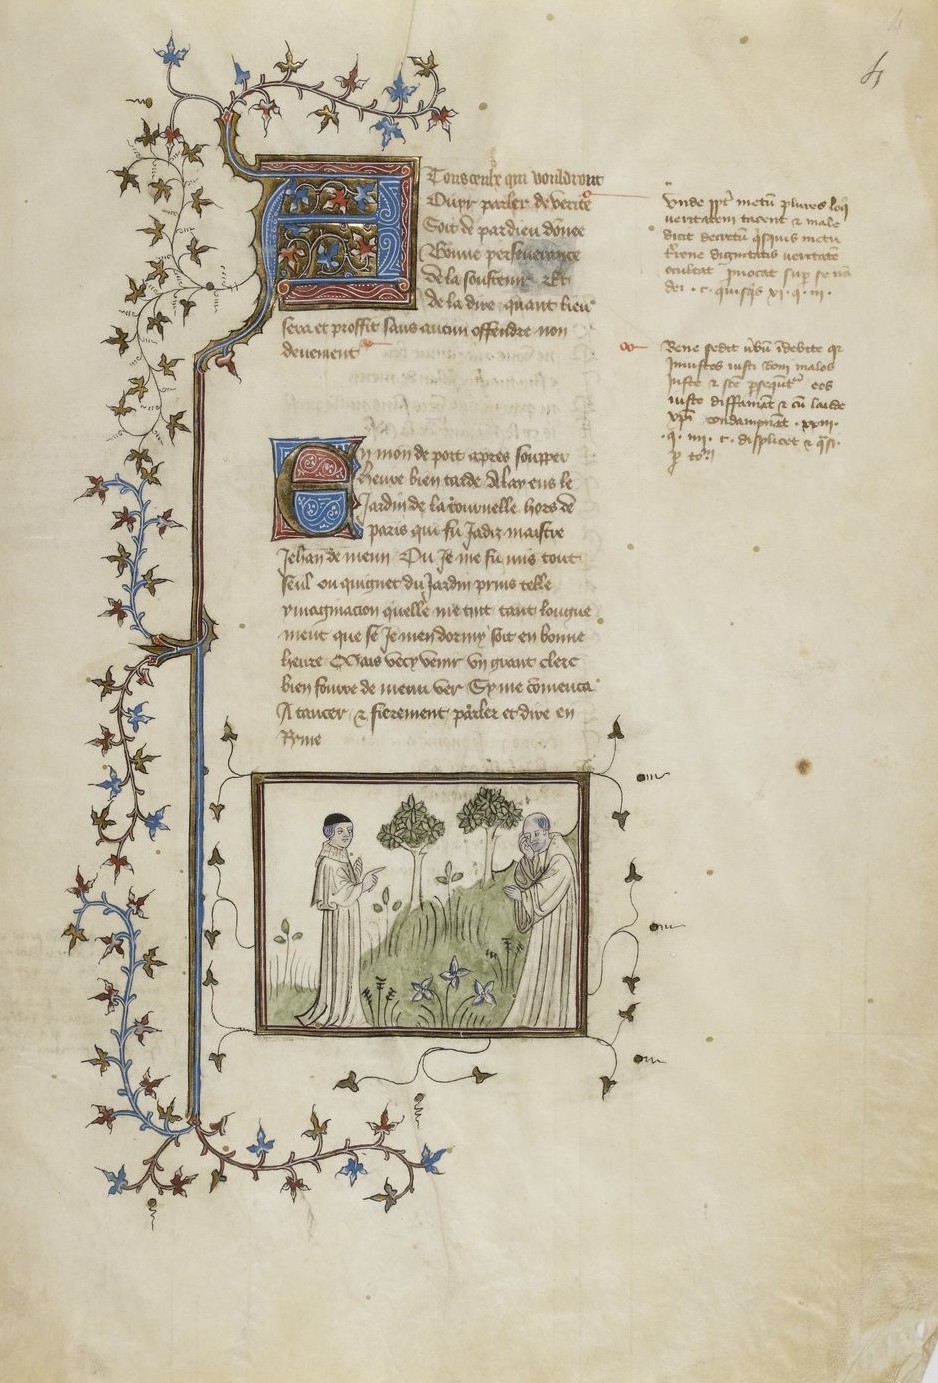 A Tous ceulx qui vouldront
Ouyr parler de verite
Soit de par dieu donne
Bonne perseverance
de la soustenir Et
de la dire quant lieu
sera et proffit sans aucun offendre non
deuement
En mon deport apres soupper
Heure bien tarde Alay ens le
Jardin de la tournelle hors de
paris qui fu Jadiz maistre
Jehan de meun Ou Je me fu mis tout
Seul ou quignet du Jardin prins telle
ymaginacion quelle me tint tant longue
ment que se Je men dormy soit en bonne
heure Mais vecy venir vn grant clerc
bien fourre de menu ver Sy me comenca
A tancer & fierement parler et dire en
Ryme
vnde ppt metu plures
ueritatem tacent & male
dicit decretu qsquis metu
ueritate
occultat
dei · c · quisqis xi · q · iii ·
Bene
Iniustos iusti boni malos
iuste & eos
iuste diffamat & cu laude
condampnat · xxiii ·
· q · iiii · c · displicet & qsi ·